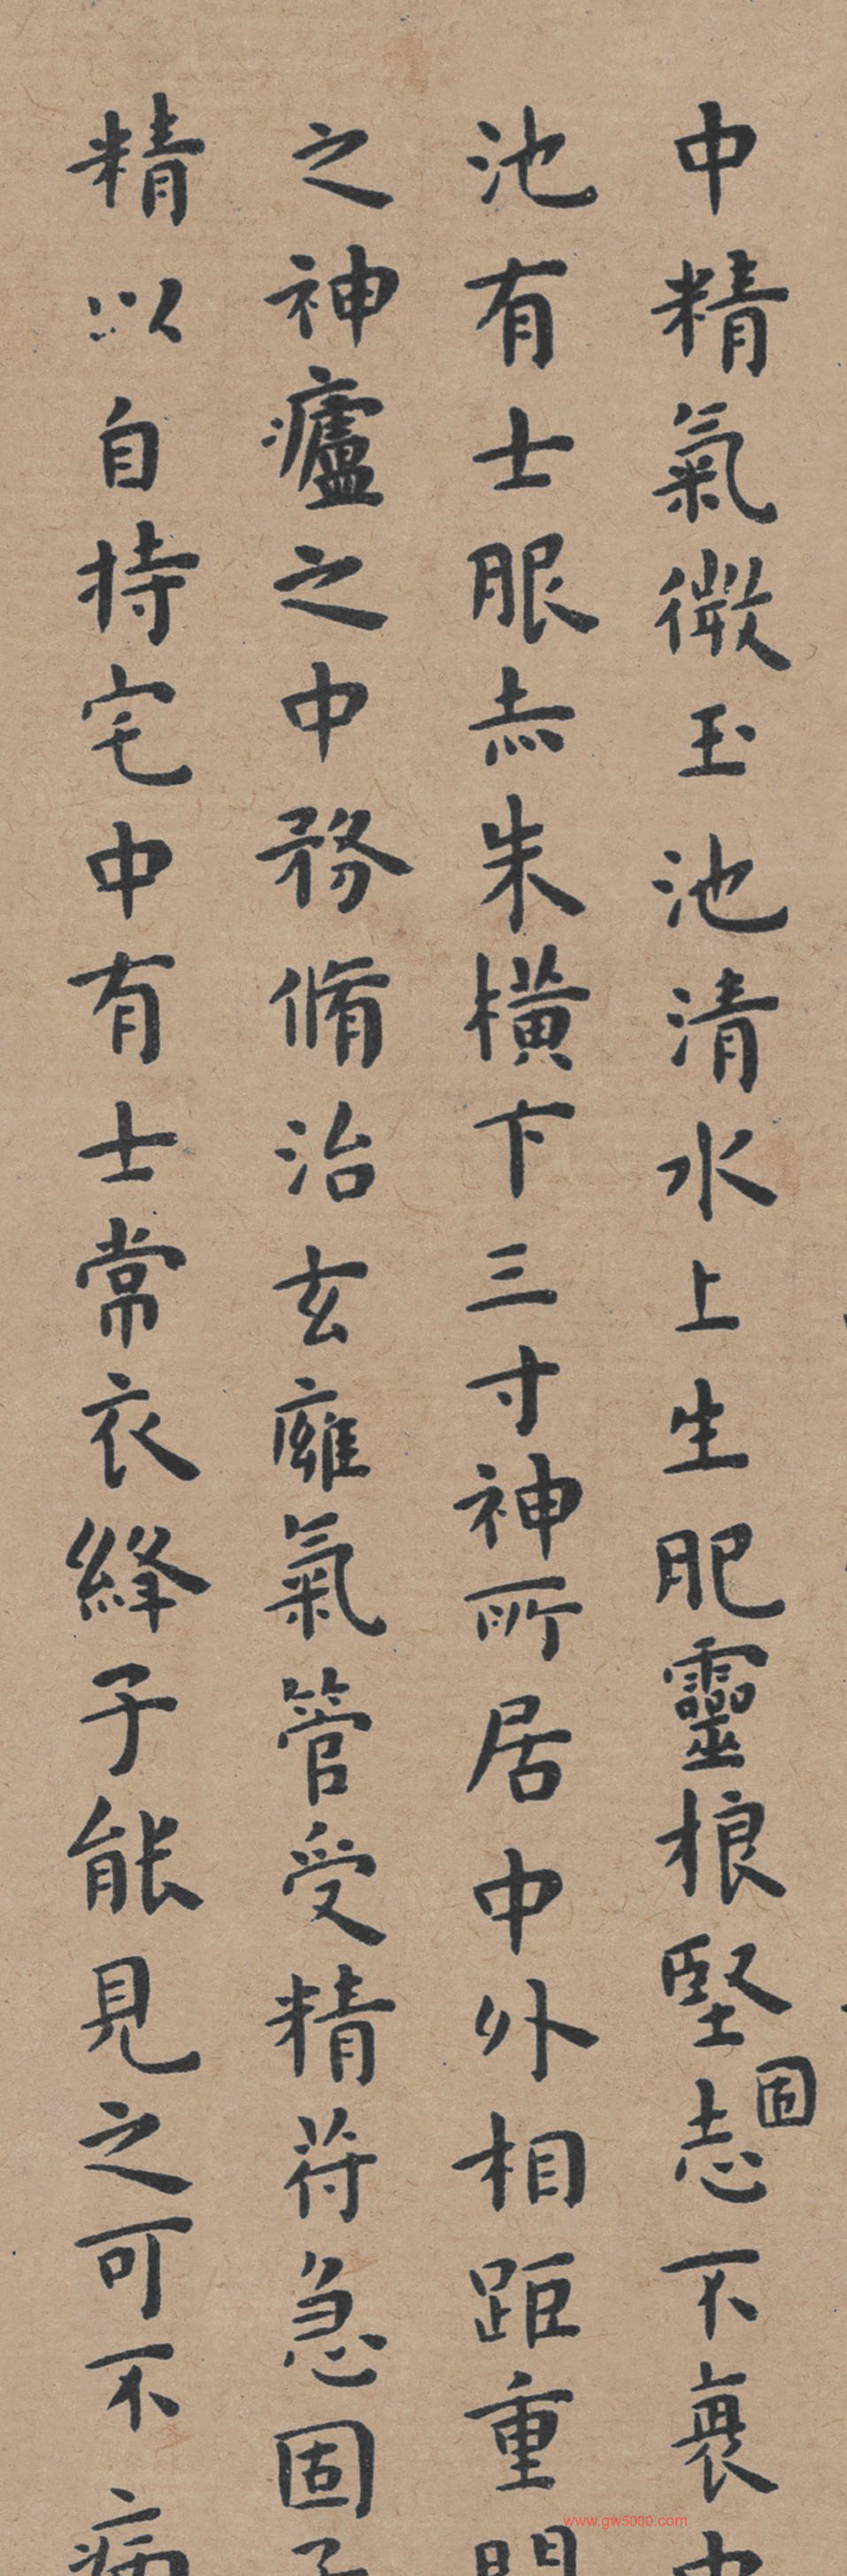 中精氣微玉池清水上生肥靈根堅固志不衰中
池有士服赤朱橫下三寸神所居中外相距重閉
之神廬之中務脩治玄廱氣管受精符急固子
精以自持宅中有士常衣絳子能見之可不病
www.gw5000.com